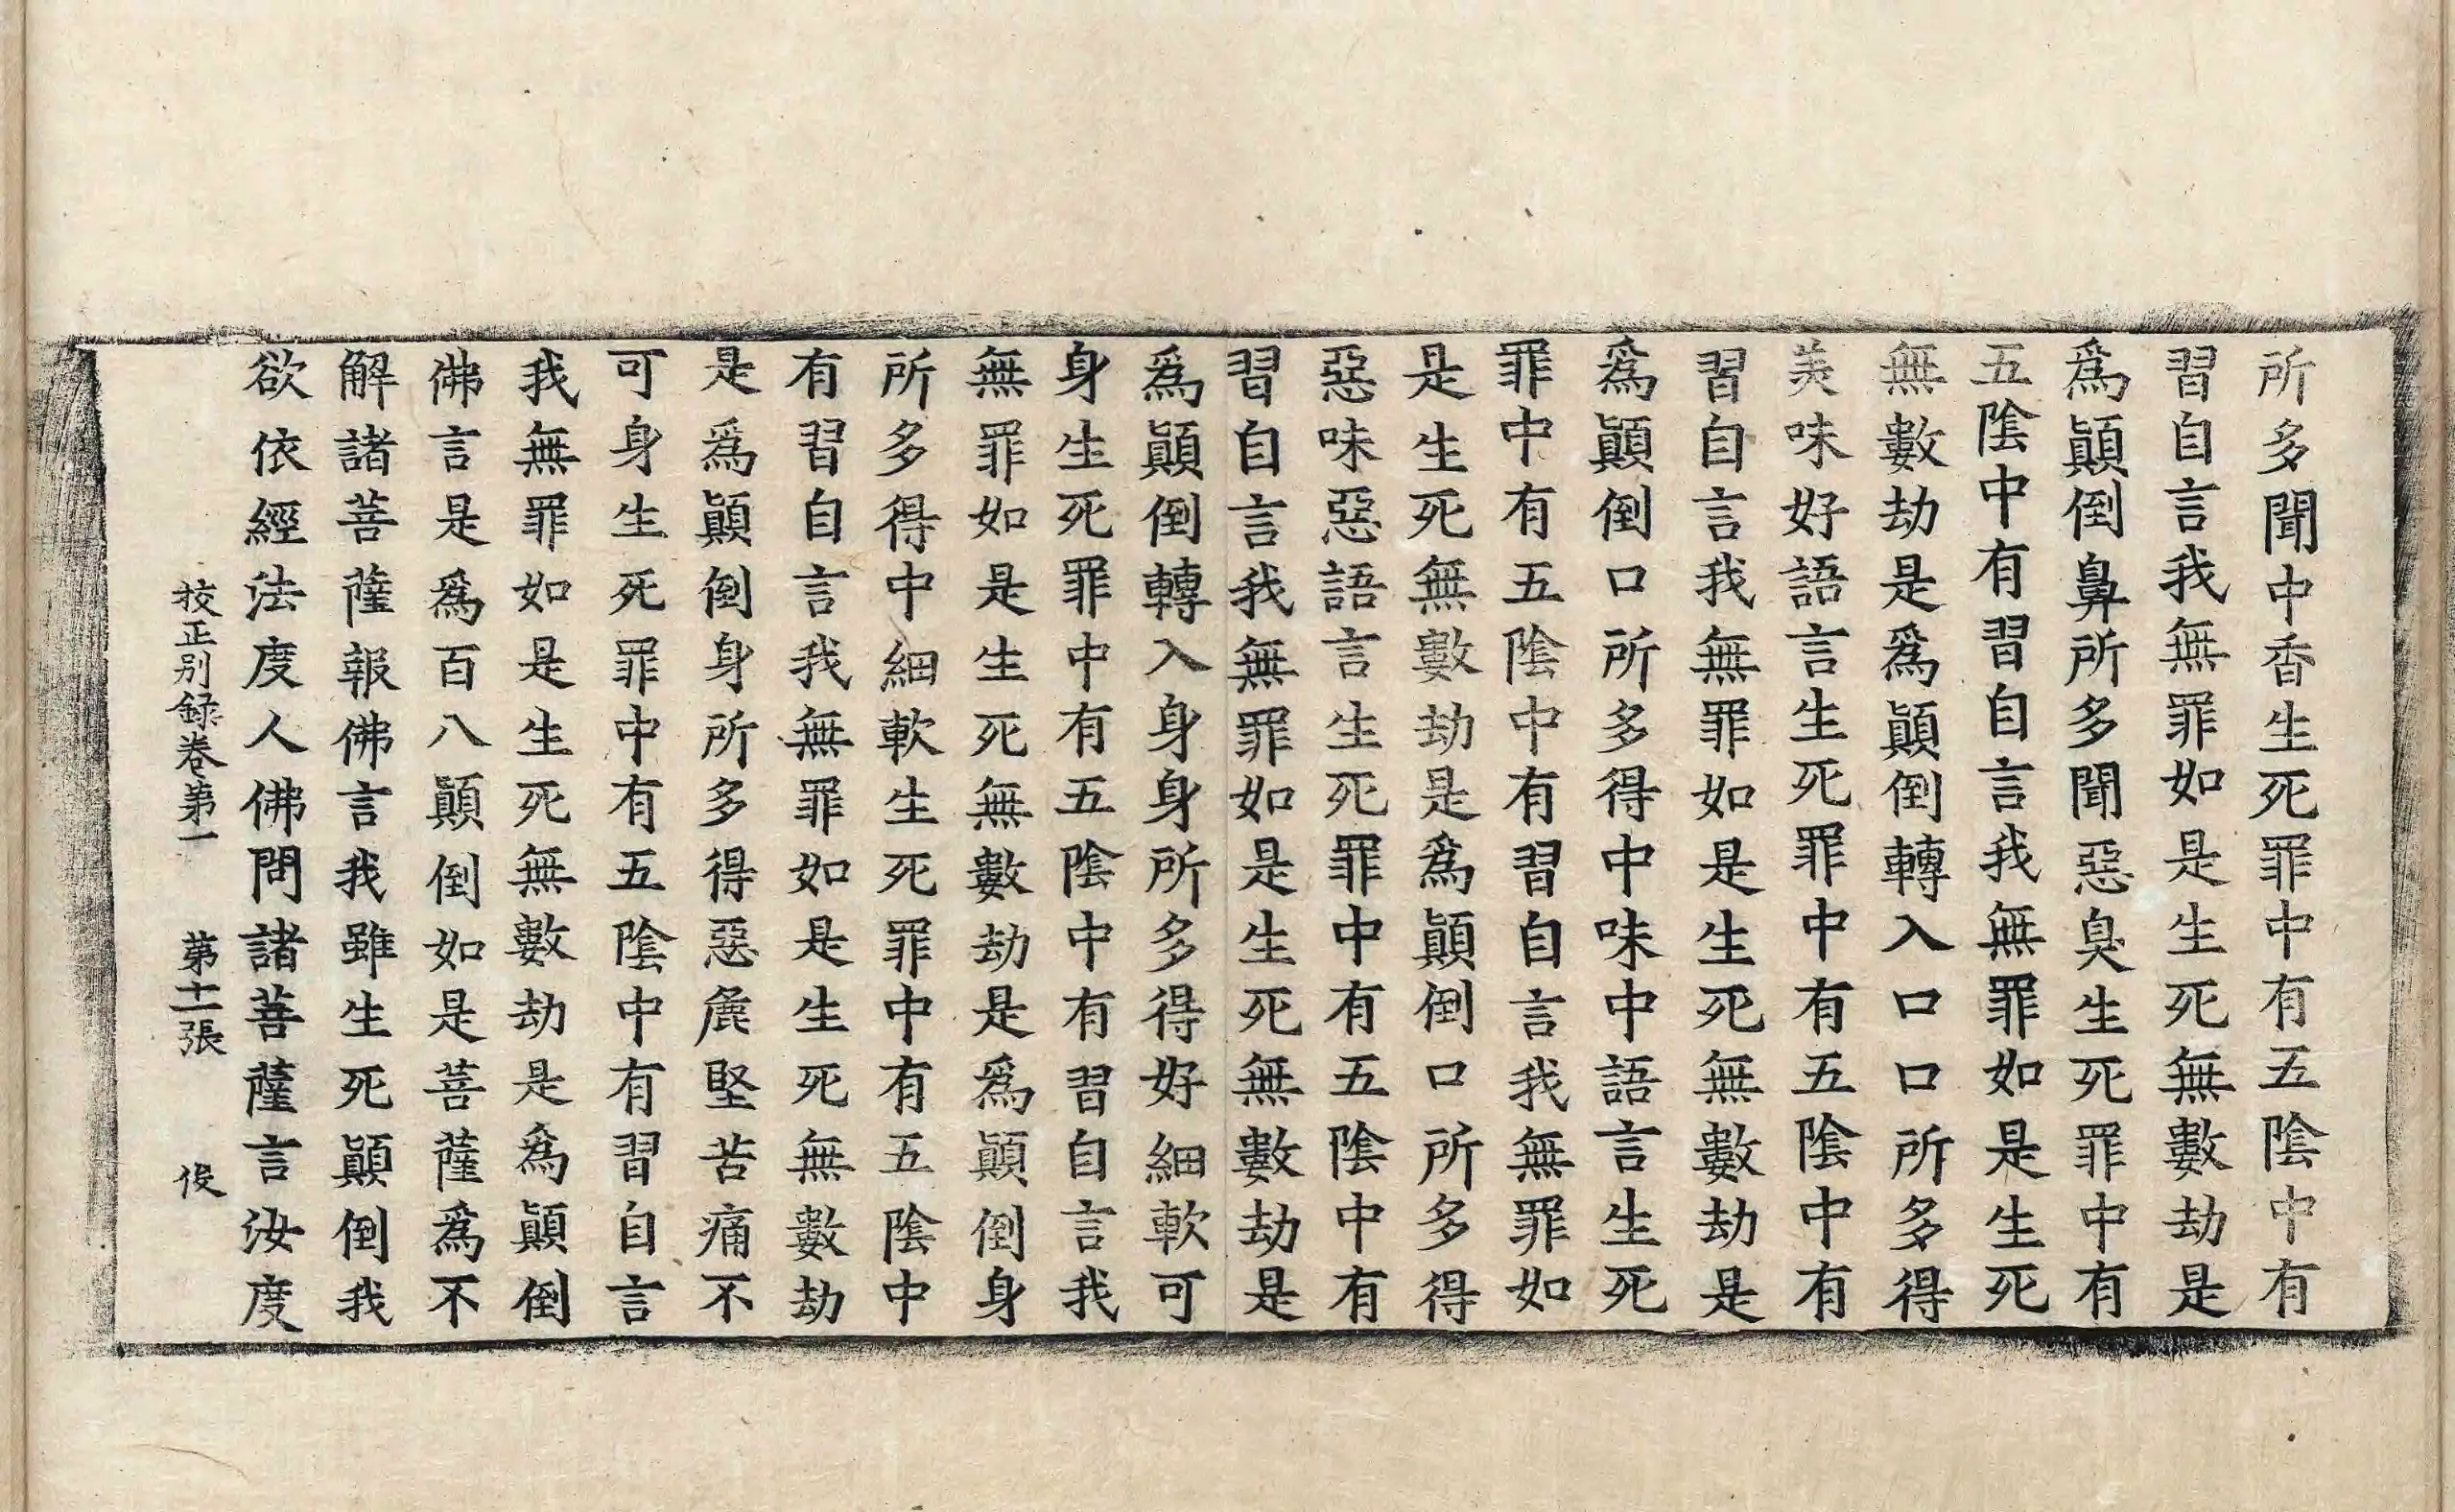 所多聞中香生死罪中有五陰中有
習自言我無罪如是生死無數劫是
爲顚倒鼻所多聞惡臭生死罪中有
五陰中有習自言我無罪如是生死
無數劫是爲顚倒轉入口口所多得
美味好語言生死罪中有五陰中有
習自言我無罪如是生死無數劫是
爲顚倒口所多得中味中語言生死
罪中有五陰中有習自言我無罪如
是生死無數劫是爲顚倒口所多得
惡味惡語言生死罪中有五陰中有
習自言我無罪如是生死無數劫是
爲顚倒轉入身身所多得好細軟可
身生死罪中有五陰中有習自言我
無罪如是生死無數劫是爲顚倒身
所多得中細軟生死罪中有五陰中
有習自言我無罪如是生死無數劫
是爲顚倒身所多得惡麁堅苦痛不
可身生死罪中有五陰中有習自言
我無罪如是生死無數劫是爲顚倒
佛言是爲百八顚倒如是菩薩爲不
解諸菩薩報佛言我雖生死顚倒我
欲依經法度人佛問諸菩薩言汝度
校正別録卷第一　第十一張　俊